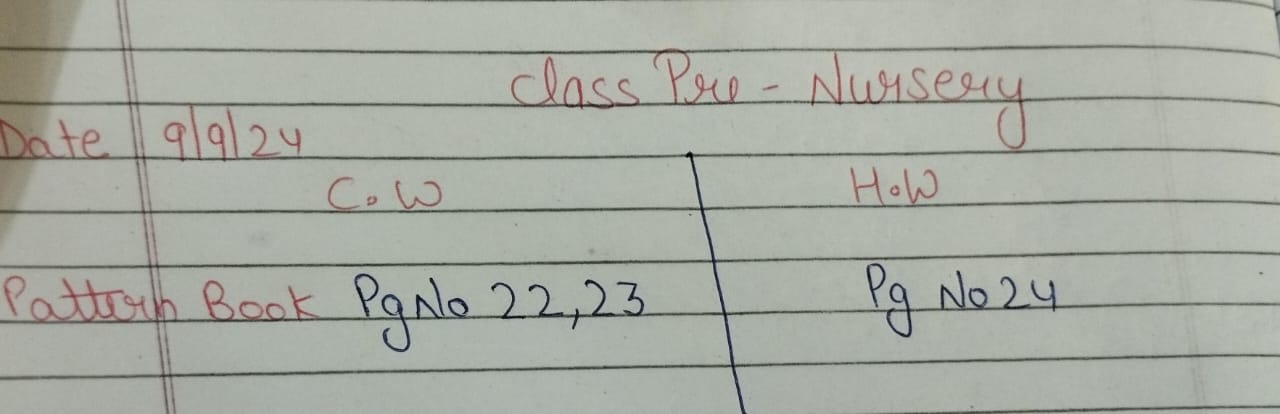 Class Pre - Nursery
Date 9/9/24
C.W H.W
Pattern Book Pg No 22,23 Pg No 24